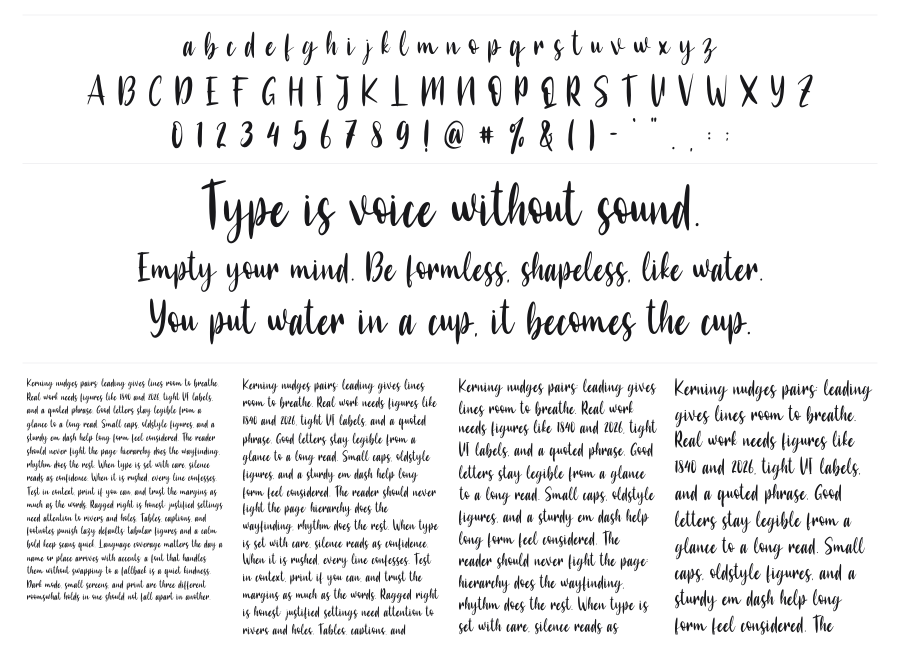 a b c d e f g h i j k l m n o p q r s t u v w x y z
A B C D E F G H I J K L M N O P Q R S T U V W X Y Z
0 1 2 3 4 5 6 7 8 9 ! @ # % & ( ) - ' " . , : ;
Type is voice without sound.
Empty your mind. Be formless, shapeless, like water.
You put water in a cup, it becomes the cup.
Kerning nudges pairs; leading gives lines room to breathe.
Real work needs figures like 1840 and 2026, tight VA labels,
and a quoted phrase. Good letters stay legible from a
glance to a long read. Small caps, oldstyle figures, and a
sturdy em dash help long form feel considered. The reader
should never fight the page; hierarchy does the wayfinding,
rhythm does the rest. When type is set with care, silence
reads as confidence. When it is rushed, every line confesses.
Test in context, print if you can, and trust the margins as
much as the words. Ragged right is honest; justified settings
need attention to rivers and holes. Tables, captions, and
footnotes punish lazy defaults; tabular figures and a calm
bold keep scans quiet. Language coverage matters the day a
name or place arrives with accents; a font that handles
them without swapping to a fallback is a quiet kindness.
Dark mode, small screens, and print are three different
rooms; what holds in one should not fall apart in another.
Kerning nudges pairs; leading gives lines
room to breathe. Real work needs figures like
1840 and 2026, tight VA labels, and a quoted
phrase. Good letters stay legible from a
glance to a long read. Small caps, oldstyle
figures, and a sturdy em dash help long
form feel considered. The reader should never
fight the page; hierarchy does the
wayfinding, rhythm does the rest. When type
is set with care, silence reads as confidence.
When it is rushed, every line confesses. Test
in context, print if you can, and trust the
margins as much as the words. Ragged right
is honest; justified settings need attention to
rivers and holes. Tables, captions, and
Kerning nudges pairs; leading gives
lines room to breathe. Real work
needs figures like 1840 and 2026, tight
VA labels, and a quoted phrase. Good
letters stay legible from a glance
to a long read. Small caps, oldstyle
figures, and a sturdy em dash help
long form feel considered. The
reader should never fight the page;
hierarchy does the wayfinding,
rhythm does the rest. When type is
set with care, silence reads as
Kerning nudges pairs; leading
gives lines room to breathe.
Real work needs figures like
1840 and 2026, tight VA labels,
and a quoted phrase. Good
letters stay legible from a
glance to a long read. Small
caps, oldstyle figures, and a
sturdy em dash help long
form feel considered. The